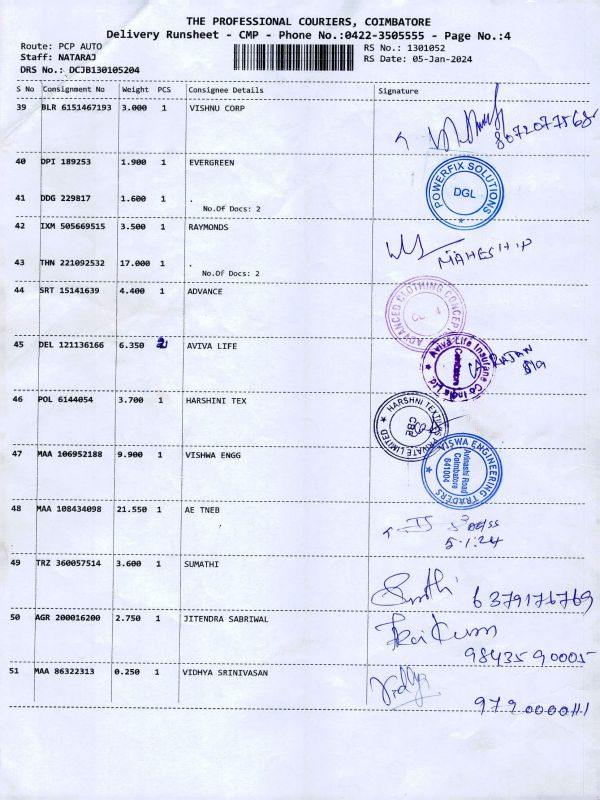 THE PROFESSIONAL COURIERS, COIMBATORE
Delivery Runsheet - CMP - Phone No.:0422-3505555 - Page No.:4
Route: PCP AUTO RS No.: 1301052
Staff: NATARAJ RS Date: 05-Jan-2024
DRS No.: DCJB130105204
S No Consignment No Weight PCS Consignee Details Signature
39 BLR 6151467193 3.000 1 VISHNU CORP
8072077568
40 DPI 189253 1.900 1 EVERGREEN
POWERFIX SOLUTIONS
DGL
41 DDG 229817 1.600 1 .
No.Of Docs: 2
42 IXM 505669515 3.500 1 RAYMONDS
MAHESH.P
43 THN 221092532 17.000 1 .
No.Of Docs: 2
44 SRT 15141639 4.400 1 ADVANCE
ADVANCED CLOTHING CONCEPT
45 DEL 121136166 6.350 2 AVIVA LIFE
Aviva Life Insurance Co India Ltd
Coimbatore
RAJAN
46 POL 6144054 3.700 1 HARSHINI TEX
HARSHNI TEXTILES PRIVATE LIMITED
CBE
47 MAA 106952188 9.900 1 VISHWA ENGG
VISWA ENGINEERING TRADERS
Avinashi Road
Coimbatore
641004
48 MAA 108434098 21.550 1 AE TNEB
5.1.24
49 TRZ 360057514 3.600 1 SUMATHI
Sumthi 6379176769
50 AGR 200016200 2.750 1 JITENDRA SABRIWAL
Raj Kumar
9843590005
51 MAA 86322313 0.250 1 VIDHYA SRINIVASAN
Vidhya